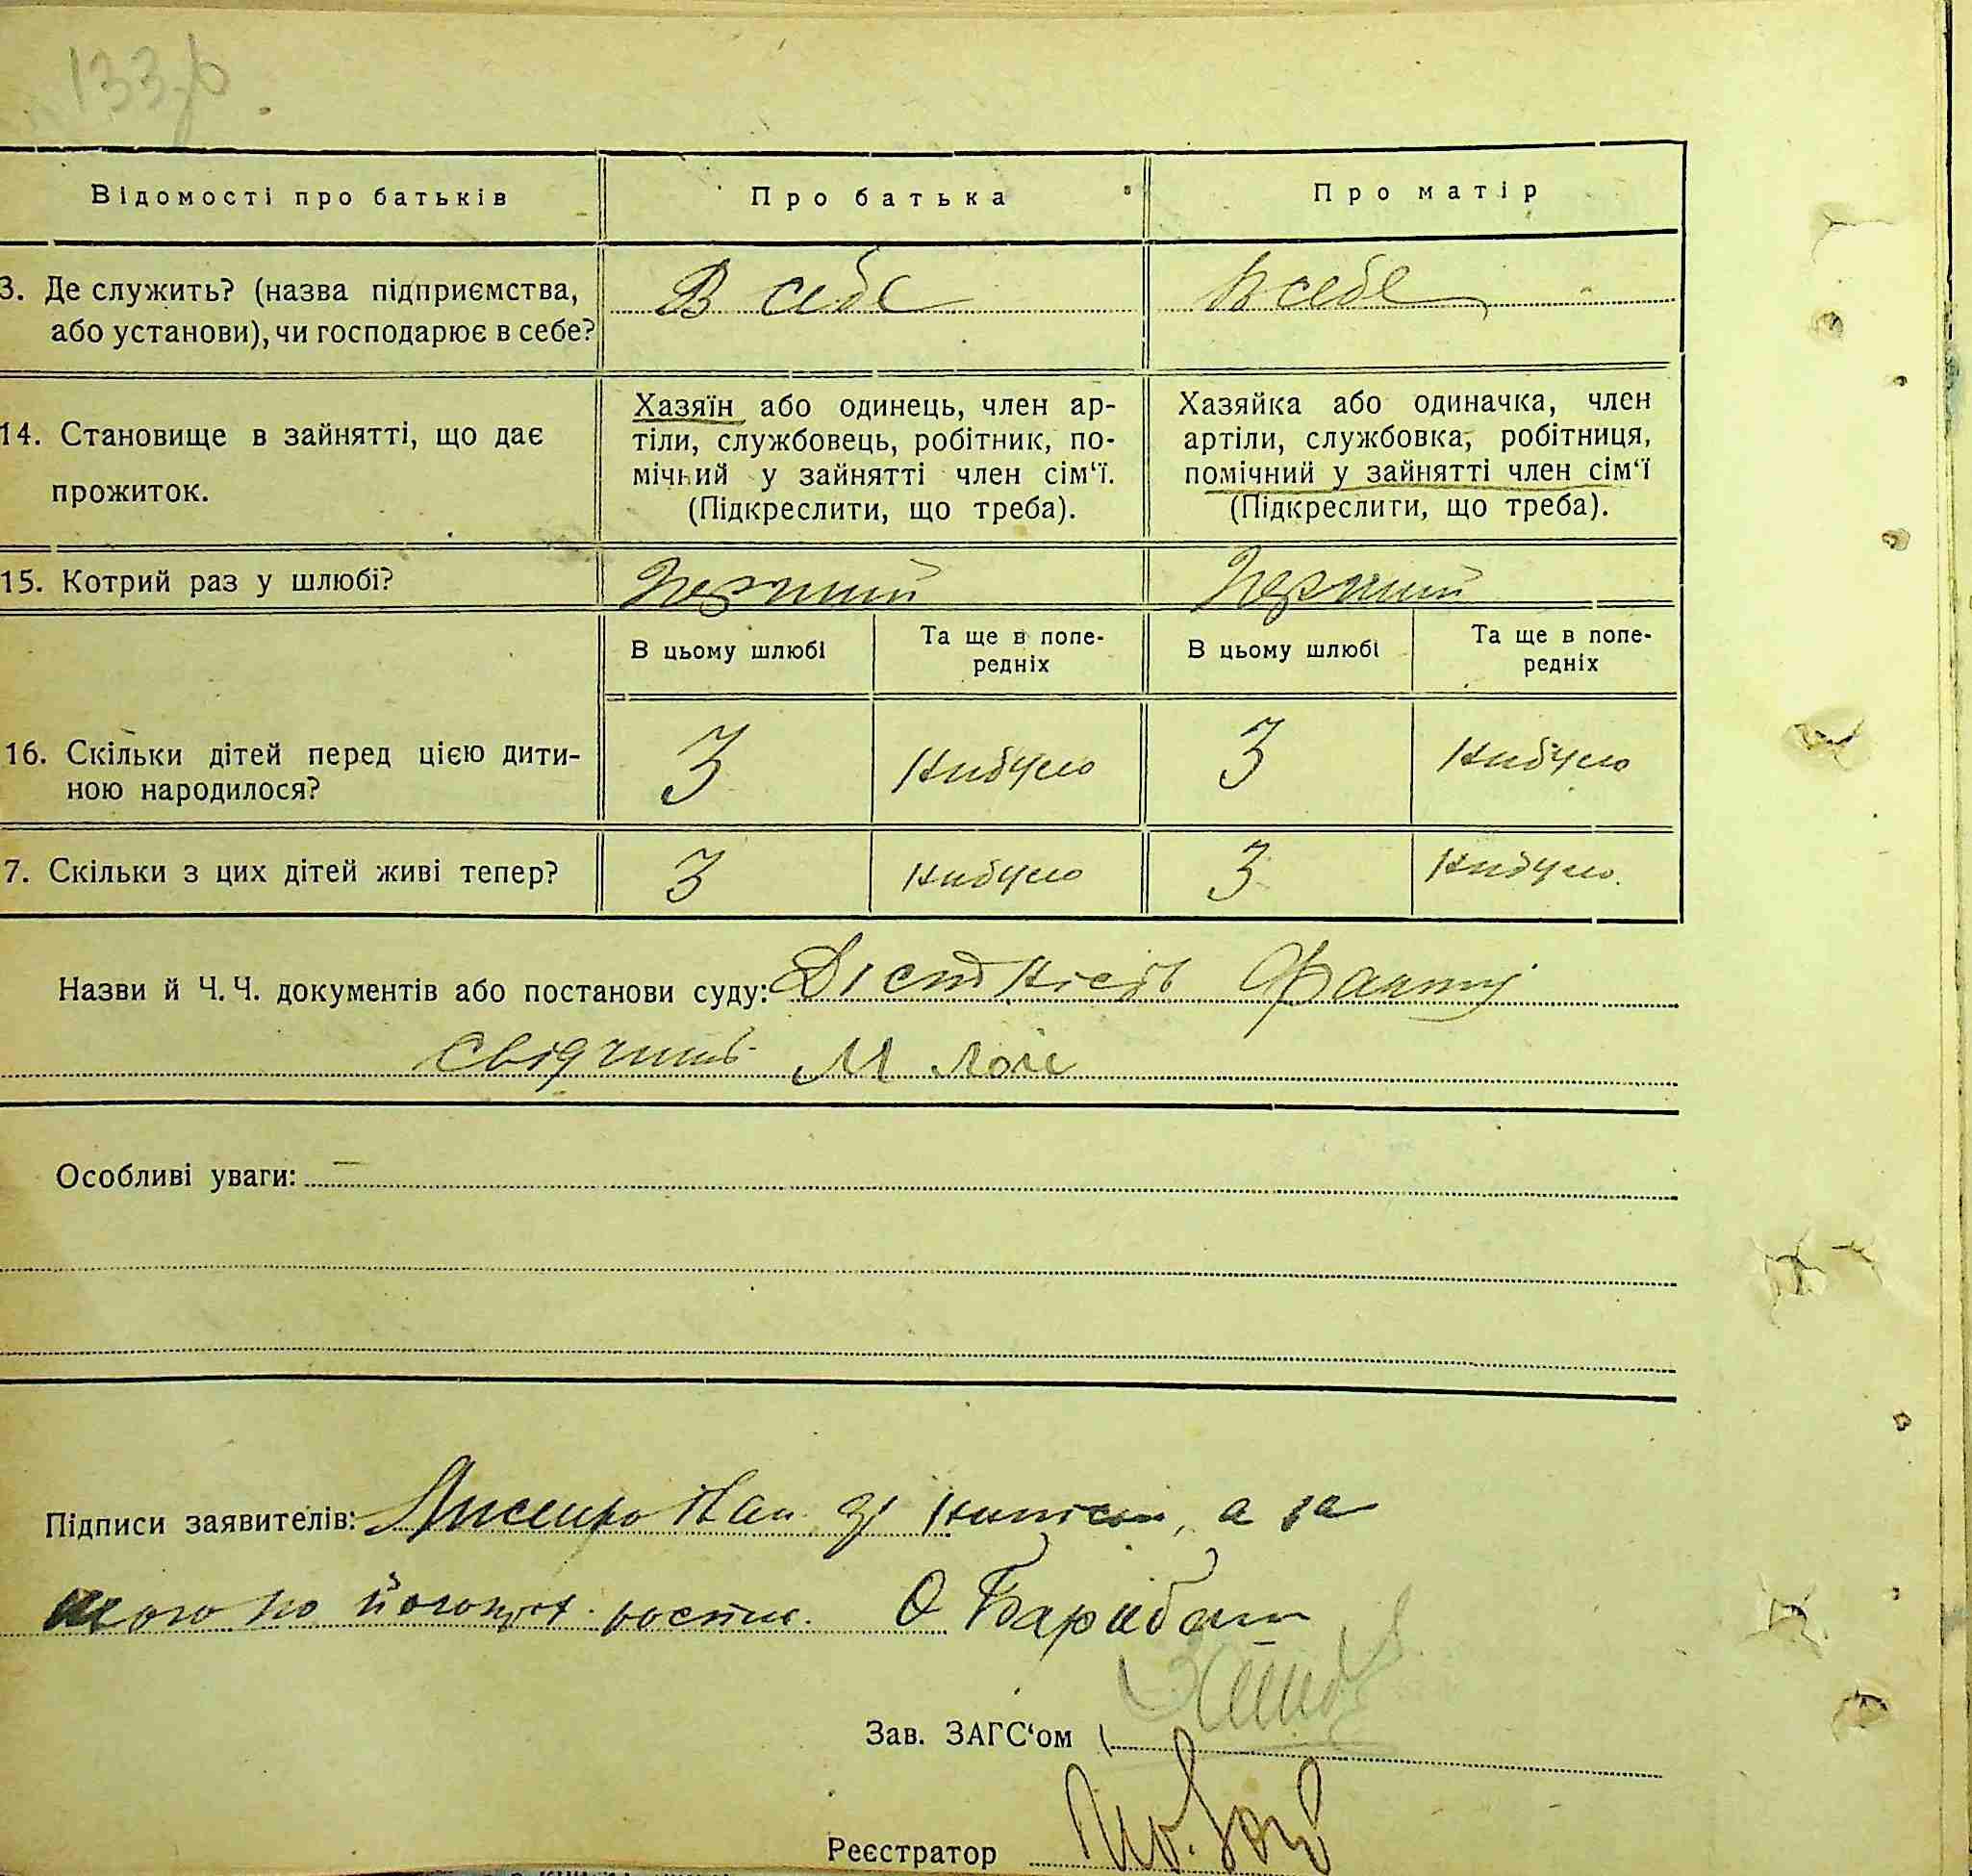 133
Відомості про батьків
Про батька
Про матір
3. Де служить? (назва підприємства,
або установи), чи господарює в себе?
В себе
В себе
14. Становище в зайнятті, що дає
прожиток.
Хазяїн або одинець, член ар-
тіли, службовець, робітник, по-
мічний у зайнятті член сім'ї.
(Підкреслити, що треба).
Хазяйка або одиначка, член
артіли, службовка, робітниця,
помічний у зайнятті член сім'ї
(Підкреслити, що треба).
15. Котрий раз у шлюбі?
Перший
Перший
В цьому шлюбі
Та ще в попе-
редніх
В цьому шлюбі
Та ще в попе-
редніх
16. Скільки дітей перед цією дити-
ною народилося?
3
Нибуло
3
Нибуло
7. Скільки з цих дітей живі тепер?
3
Нибуло
3
Нибуло.
Назви й Ч.Ч. документів або постанови суду:
свідчить М
Особливі уваги: —
Підписи заявителів: а за
О
Зав. ЗАГС'ом
Реєстратор